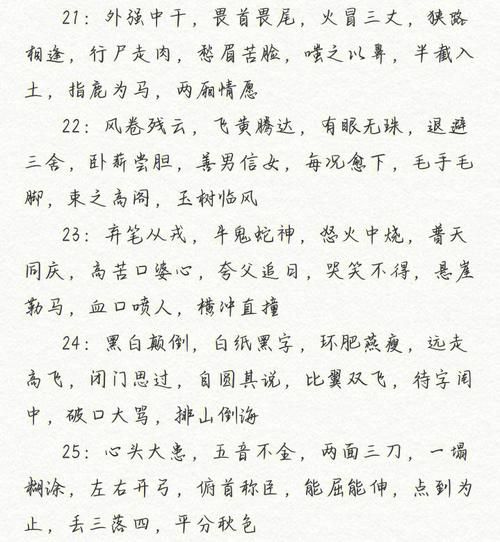 21：外强中干，畏首畏尾，火冒三丈，狭路
相逢，行尸走肉，愁眉苦脸，嗤之以鼻，半截入
土，指鹿为马，两厢情愿
22：风卷残云，飞黄腾达，有眼无珠，退避
三舍，卧薪尝胆，善男信女，每况愈下，毛手毛
脚，束之高阁，玉树临风
23：弃笔从戎，斗鬼蛇神，怒火中烧，普天
同庆，高苦口婆心，夸父追日，哭笑不得，悬崖
勒马，血口喷人，横冲直撞
24：黑白颠倒，白纸黑字，环肥燕瘦，远走
高飞，闭门思过，自圆其说，比翼双飞，待字闺
中，破口大骂，排山倒海
25：心头大患，五音不全，两面三刀，一塌
糊涂，左右开弓，俯首称臣，能屈能伸，点到为
止，丢三落四，平分秋色